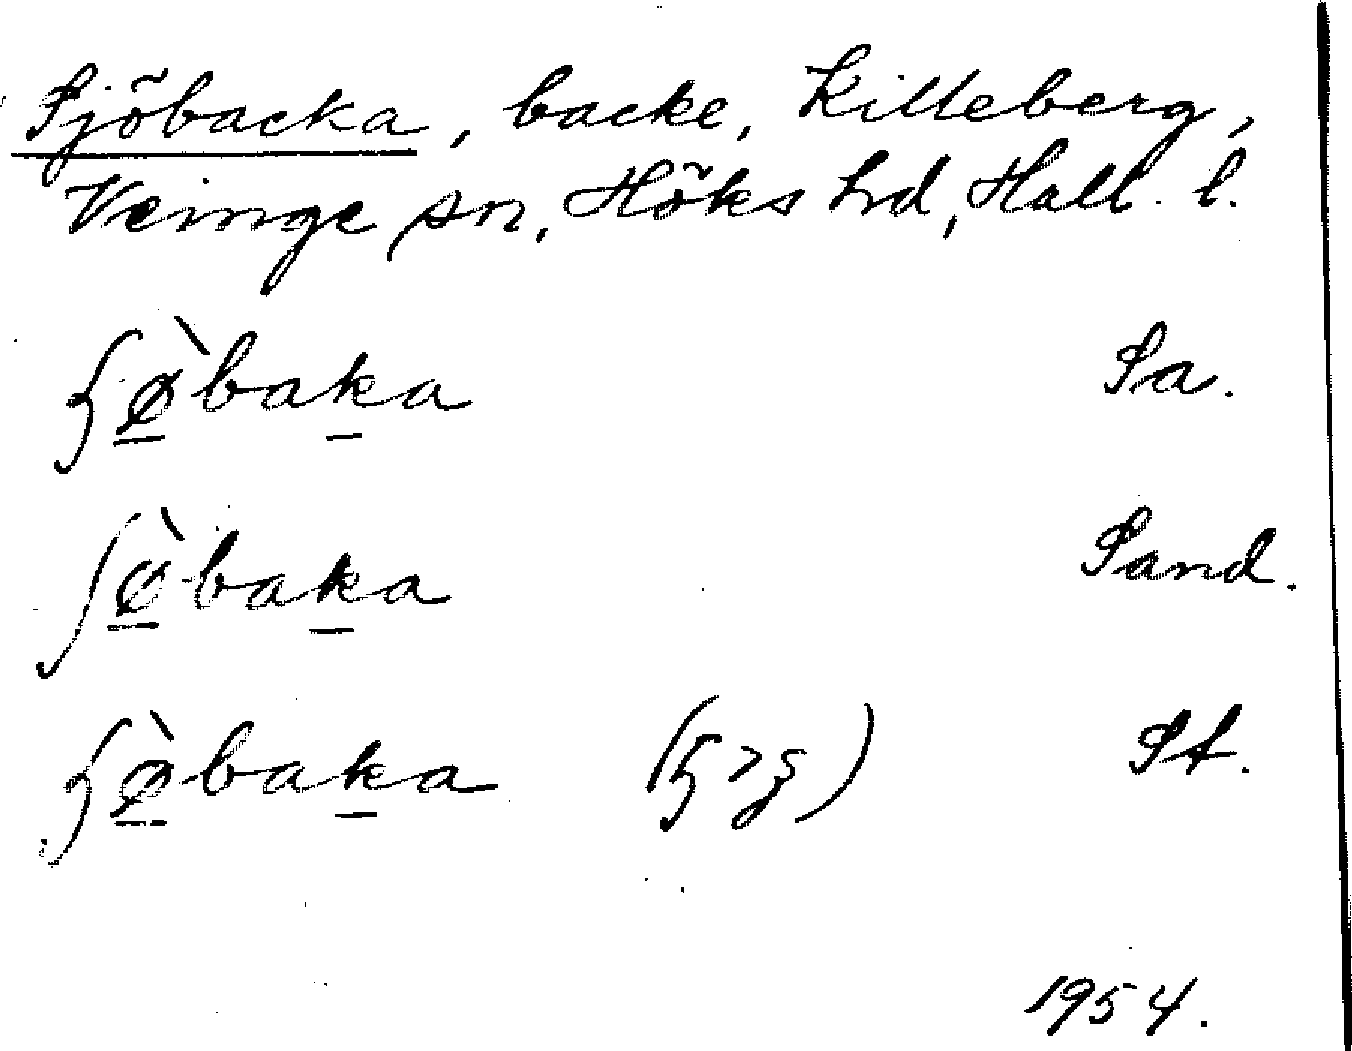 Sjöbacka, backe, Killeberg,
Veinge sn, Höks hd, Hall. l.
ʃø̠̀bak̠a Sa.
ʃø̠̀bak̠a Sand.
ʃø̠̀bak̠a St.
1954.